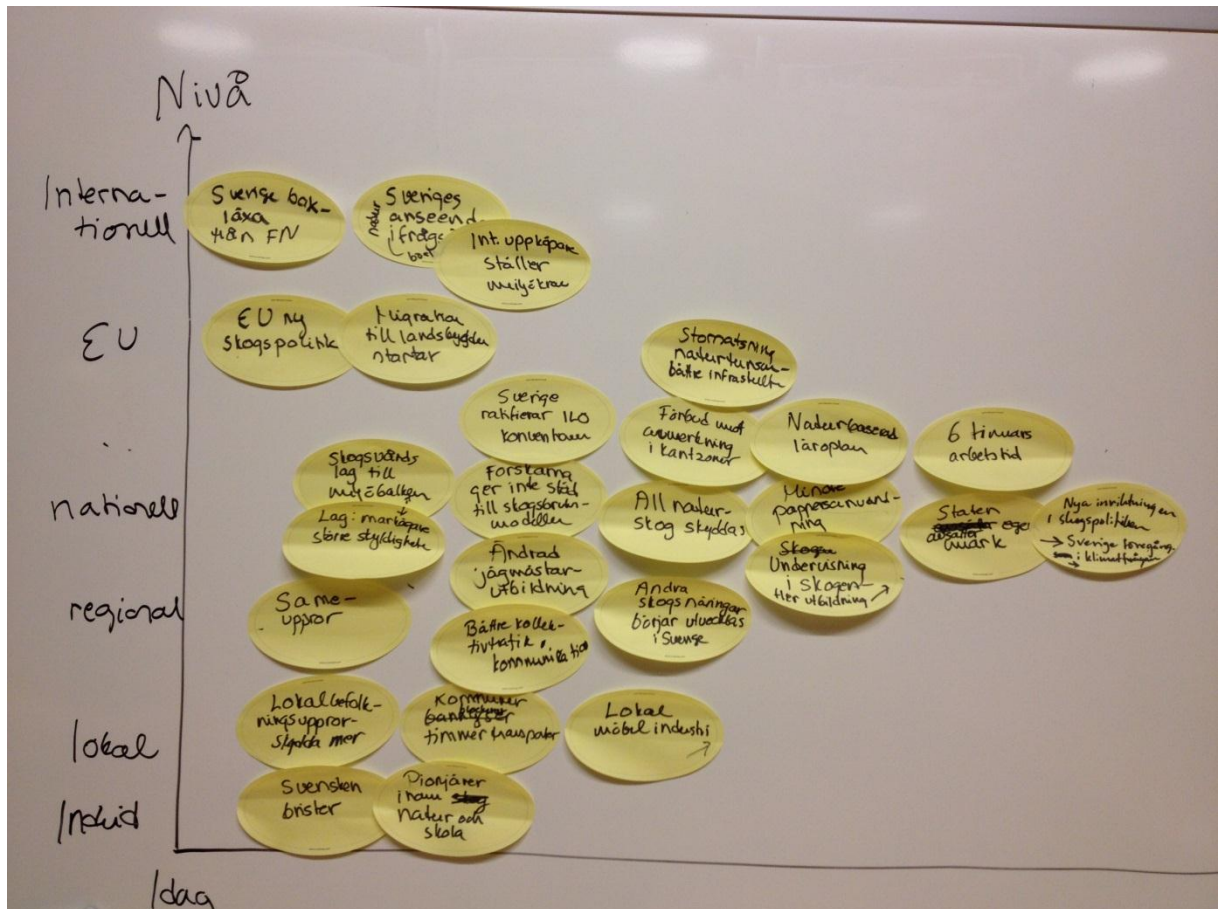 Nivå
Interna-
tionell
Sverige bak-
läxa
från FN
natur
Sveriges
anseende
ifrågas
Int. uppköpare
ställer
miljökrav
EU
EU ny
skogspolitik
Migration
till landsbygden
startar
Stornatsning
naturturism-
bättre infrastruktu
Sverige
ratificerar ILO
konventionen
Förbud mot
avverkning
i kantzoner
Naturbaserad
läroplan
6 timmars
arbetstid
nationell
Skogsvårds
lag till
miljöbalken
Lag: markägare
större skyldigheter
Forskarna
ger inte stöd
till skogsbruks-
modellen
All natur-
skog skyddas
Mindre
pappersanvänd-
ning
Staten
egen
mark
Nya inriktningen
i skogspolitiken
→ Sverige föregång
→ i klimatfrågan
Ändrad
jägmästar-
utbildning
Skogen
Undervisning
i skogen-
Mer utbildning
regional
Same-
uppror
Bättre kollek-
tivtrafik,
kommunikation
Andra
skogsnäringar
börjar utvecklas
i Sverige
lokal
Lokalbefolk-
ningsuppror-
skydda mer
Kommuner
blockerar
timmertransporter
Lokal
möbelindustri
Individ
Svensken
brister
Pionjärer
inom
natur och
skola
Idag